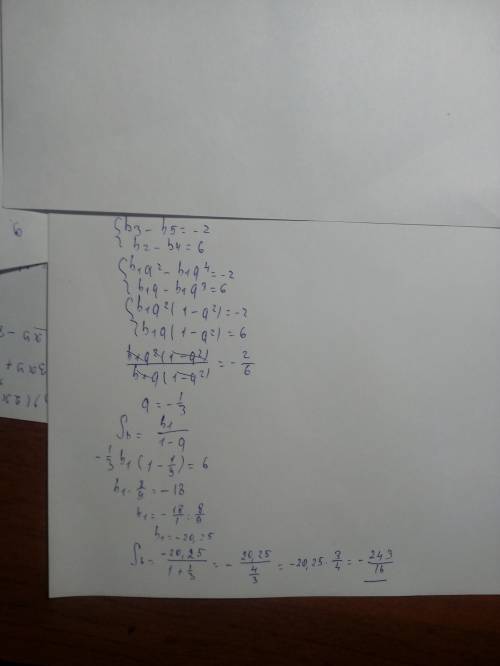 { b3 - b5 = -2
{ b2 - b4 = 6
{ b1q² - b1q⁴ = -2
{ b1q - b1q³ = 6
{ b1q²(1 - q²) = -2
{ b1q(1 - q²) = 6
b1q²(1-q²) / b1q(1-q²) = -2/6
q = -1/3
Sb = b1/(1-q)
-1/3 b1(1 - 1/9) = 6
b1 · 8/9 = -18
b1 = -18/1 : 8/9
b1 = -20,25
Sb = -20,25/(1+1/3) = - 20,25/(4/3) = -20,25 · 3/4 = - 243/16